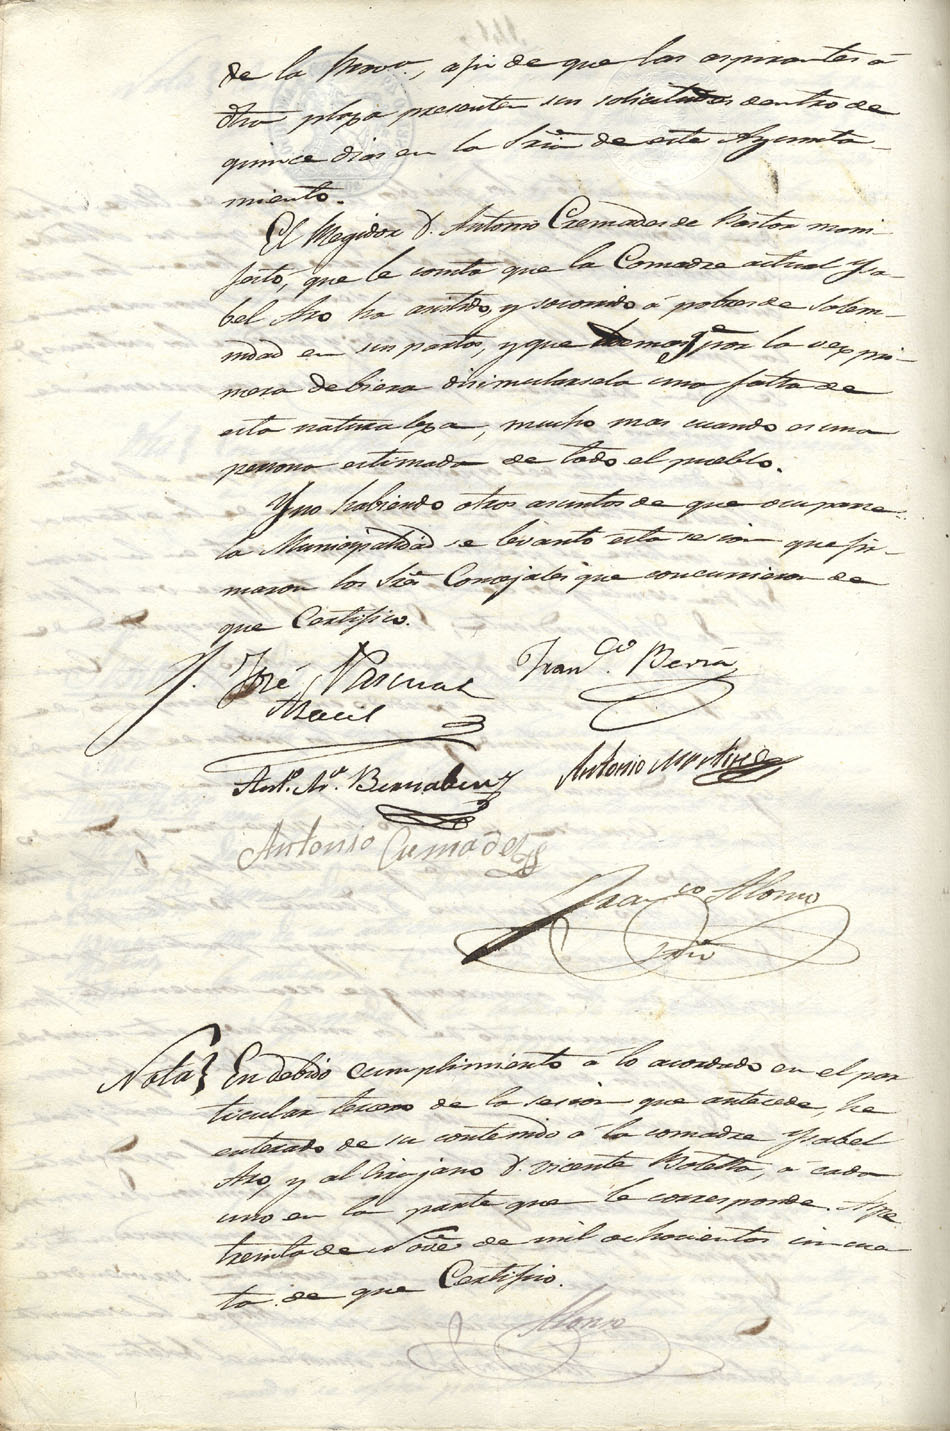 de la Prova., a fin de que los aspirantes á
dha plaza presenten sus solicitudes dentro de
quince dias en la Sria de este Ayunta-
miento.
El Regidor D. Antonio Cremades de Pastor mani-
festó, que le consta que la Comadre actual Ysa-
bel Aro ha asistido, y socorrido á pobres de solem-
nidad en sus partos, y que por la vez pri-
mera debiera disimularsela una falta de
esta naturaleza, mucho mas cuando es una
persona estimada de todo el pueblo.
Y no habiendo otros asuntos de que ocuparse
la Municipalidad se levantó esta sesion que fir-
maron los Sres Concejales que concurrieron de
que Certifico.
José Pascual Franco. Beviá
Aracil
Anto. Ma. Bernabeu Antonio Martinez
Antonio Cremades
Franco Alonso
Srio
Nota En debido cumplimiento á lo acordado en el par
ticular tercero de la sesion que antecede, he
enterado de su contenido á la comadre Ysabel
Aro, y al Cirujano D. Vicente Botella, á cada
uno en la parte que le corresponde.
treinta de Nove de mil ochocientos cincuen
ta de que Certifico.
Alonso